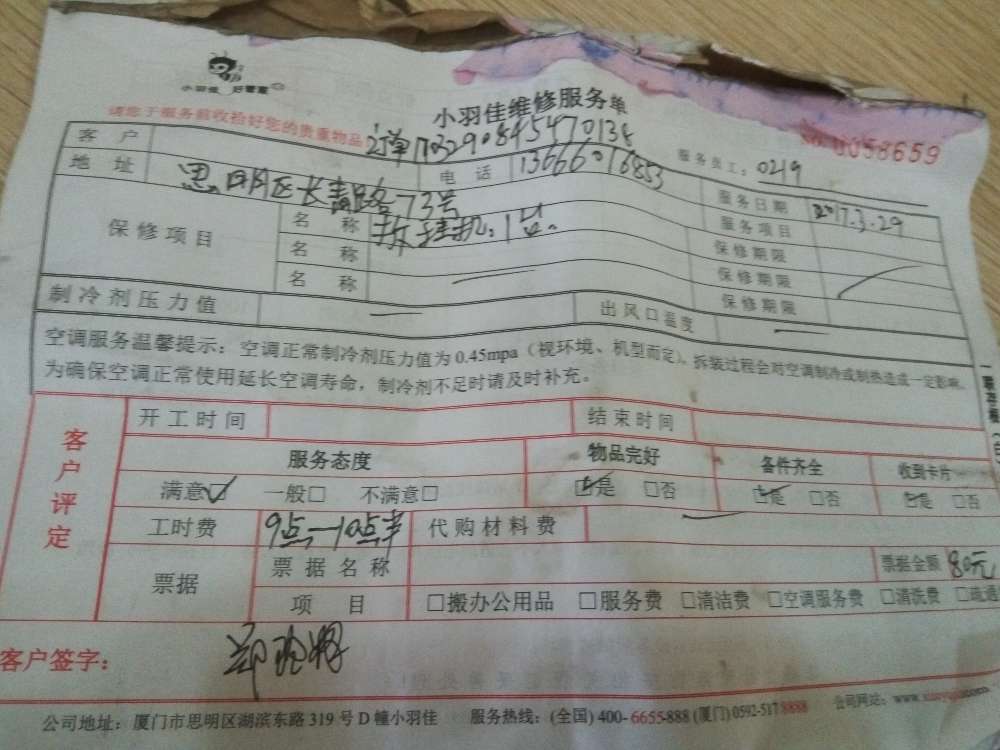 小羽佳 好管家
小羽佳维修服务单
请您于服务前收拾好您的贵重物品
订单1703290845470138
0058659
服务员工：0219
客户
地址 思明区长青路73号
电话 13666016853
服务日期 2017.3.29
保修项目
名称 拆挂机：1台。
服务项目
名称
保修期限
名称
保修期限
保修期限
制冷剂压力值
出风口温度
空调服务温馨提示：空调正常制冷剂压力值为0.45mpa（视环境、机型而定）。拆装过程会对空调制冷或制热造成一定影响。
为确保空调正常使用延长空调寿命，制冷剂不足时请及时补充。
客户评定
开工时间 结束时间
服务态度 物品完好 备件齐全 收到卡片
满意☑ 一般□ 不满意□ ☑是 □否 ☑是 □否 ☑是 □否
工时费 9点—10点半 代购材料费
票据 票据名称 票据金额 80元
项目 □搬办公用品 □服务费 □清洁费 □空调服务费 □清洗费 □疏通
客户签字：
公司地址：厦门市思明区湖滨东路319号D幢小羽佳 服务热线：(全国) 400-6655-888 (厦门) 0592-5178888 公司网站：